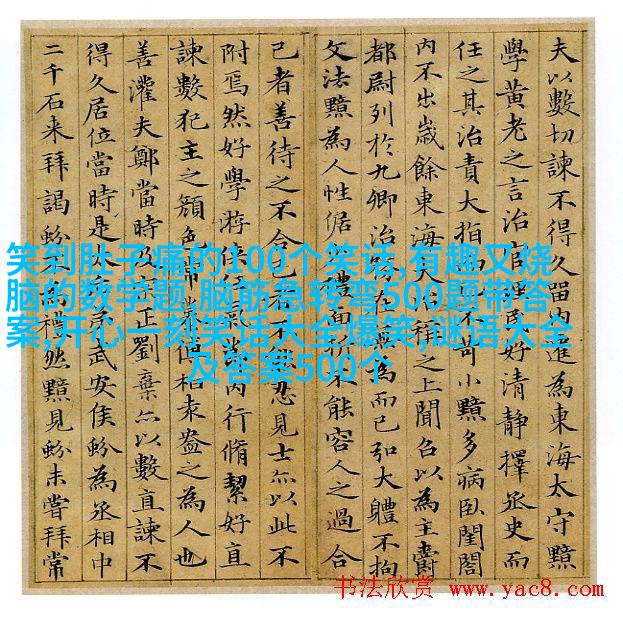 夫以數切諫不得久留內遷為東海太守黯
學黃老之言治官理民好清靜擇丞史而
任之其治責大指而不苛小黯多病臥閨閤
內不出歲餘東海大治稱之上聞召以為主爵
都尉列於九卿治務在無為而已弘大體不拘
文法黯為人性倨禮面折不能容人之過合
己者善待之不合己者不能忍見士亦以此不
附焉然好學游俠任氣節內行脩絜好直
諫數犯主之顏色常慕傅柏袁盎之為人也
善灌夫鄭當時及宗正劉棄亦以數直諫不
得久居位當時是太后弟武安侯蚡為丞相中
二千石来拜謁蚡不為禮然黯見蚡未嘗拜常
笑到肚子痛的100个笑话,有趣又烧
脑的数学题,脑筋急转弯500题带答
案,开心一刻笑话大全爆笑,谜语大全
及答案500个
书法欣赏 www.yac8.com